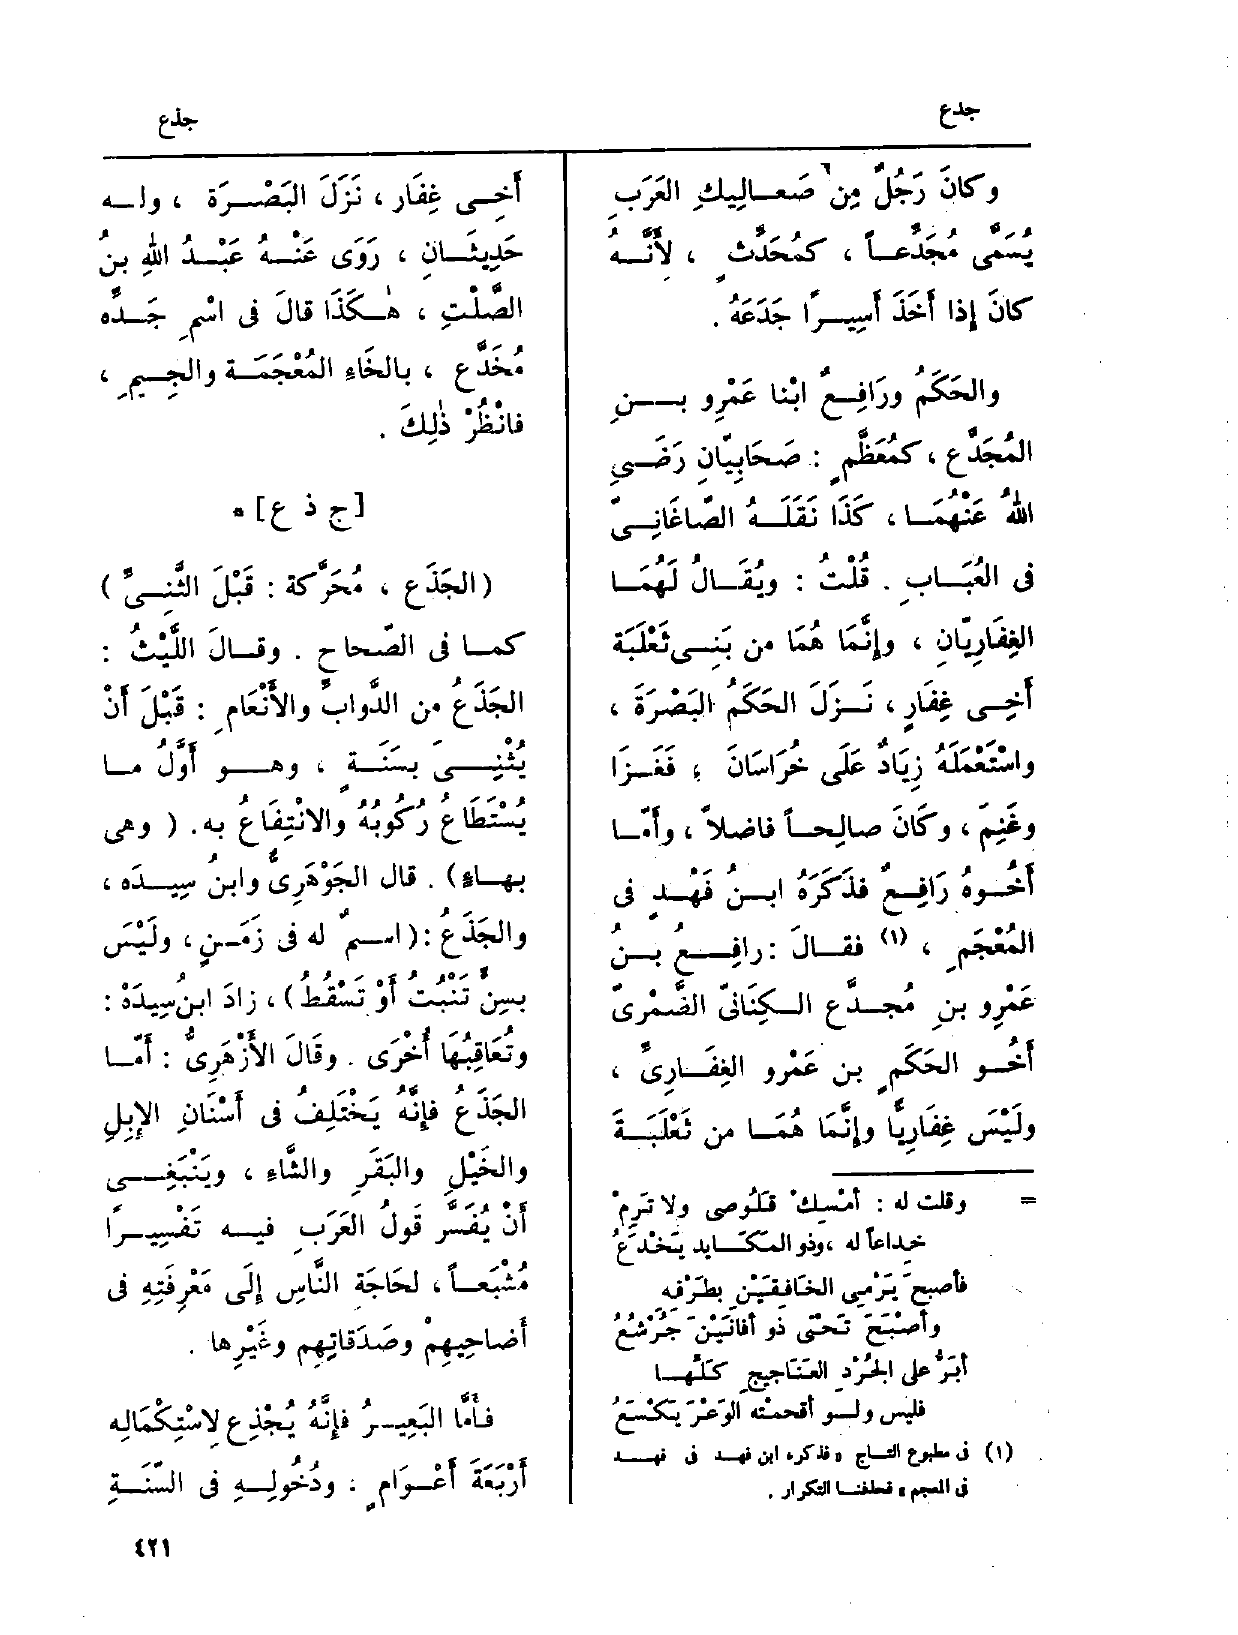 جدع
جذع
وكانَ رَجُلٌ مِن صَعـالِيكِ العَرَبِ
يُسَمَّى مُجَدَّعـاً ، كمُحَدَّثٍ ، لأَنَّـهُ
كانَ إذا أَخَذَ أَسِيـرًا جَدَعَهُ .
والحَكَمُ ورَافِـعٌ ابْنا عَمْرِو بــنِ
المُجَدَّع ، كمُعَظَّمٍ : صَحَابِيّانِ رَضِيَ
اللهُ عَنْهُمَـا ، كَذَا نَقَلَـهُ الصّاغَانِـىّ
فى العُبَـابِ . قُلْتُ : ويُقَـالُ لَهُمَـا
الغِفَارِيّانِ ، وإنَّمَا هُمَا من بَنِـى ثَعْلَبَة
أَخِـى غِفَارٍ ، نَـزَلَ الحَكَمُ البَصْرَةَ ،
واسْتَعْمَلَهُ زِيَادٌ عَلَى خُرَاسَانَ ، فَغَـزَا
وغَنِمَ ، وكَانَ صالِحـاً فاضِلاً ، وأَمّـا
أَخُـوهُ رَافِـعٌ فذَكَرَهُ ابـنُ فَهْـدٍ فى
المُعْجَمِ ، (١) فقـالَ : رافِـعُ بـنُ
عَمْرِو بنِ مُجـدَّع الـكِنَانِىّ الضَّمْرِىّ
أَخُـو الحَكَمِ بن عَمْرٍو الغِفَـارِىّ ،
ولَيْسَ غِفَارِيًّا وإنَّمَا هُمَـا من ثَعْلَبَـةَ
= وقلت له : أمْسِك قَلُوصِى ولا تَرِمْ
خِداعاً له ، وذو المَكَـايِد يَخْدَعُ
فأصبح يَرْمِى الخافِقَيْنِ بِطَرْفِه
وأصْبَحَ تَحْتِى ذو أفانَيْنَ جُرْشُعُ
أبَرُّ على الجُرْدِ العَنَاجِيجِ كُلِّهـا
فليس ولـو أقحمتَه الوَعْرَ يَكْسَعُ
(١) فى مطبوع التـاج « فذكره ابن فهـد فى فهـد
فى المعجم » فحذفنـا التكرار .
أَخِـى غِفَار ، نَزَلَ البَصْـرَة ، ولـه
حَدِيثَـانِ ، رَوَى عَنْـهُ عَبْـدُ اللهِ بنُ
الصَّلْتِ ، هٰـكَذَا قالَ فى اسْمِ جَـدِّه
مُخَدَّع ، بالخَاءِ المُعْجَمَـة والجِـيمِ ،
فانْظُرْ ذٰلِكَ .
[ج ذ ع] *
(الجَذَع ، مُحَرَّكة : قَبْلَ الثَّنِـىّ)
كمـا فى الصّحاح . وقـالَ اللَّيْثُ :
الجَذَعُ من الدَّوابِّ والأَنْعَامِ : قَبْلَ أَنْ
يُثْنِـىَ بسَنَـةٍ ، وهـو أَوَّلُ مـا
يُسْتَطَاعُ رُكُوبُهُ والانْتِفَاعُ به . ( وهى
بهـاءٍ) . قال الجَوْهَرِىُّ وابنُ سِيـدَه ،
والجَذَعُ : (اسـمٌ له فى زَمَـنٍ ، ولَيْسَ
بسِنٍّ تَنْبُتُ أَوْ تَسْقُطُ) ، زادَ ابنُ سِيدَهْ :
وتُعَاقِبُها أُخْرَى . وقَالَ الأَزْهَرِىُّ : أَمّـا
الجَذَعُ فإنَّهُ يَخْتَلِفُ فى أَسْنَانِ الإبِلِ
والخَيْلِ والبَقَرِ والشَّاءِ ، ويَنْبَغِـى
أَنْ يُفَسَّر قولُ العَرَبِ فيـه تَفْسِيـرًا
مُشْبَعـاً ، لحَاجَة النَّاسِ إلَى مَعْرِفَتِهِ فى
أَضاحِيهِمْ وصَدَقاتِهِم وغَيْرِها .
فأَمَّا البَعِيـرُ فإنَّهُ يُجْذِع لاسْتِكْمَالِهِ
أَرْبَعَةَ أَعْـوَامٍ ، ودُخُولِـهِ فى السَّنَـةِ
٤٢١